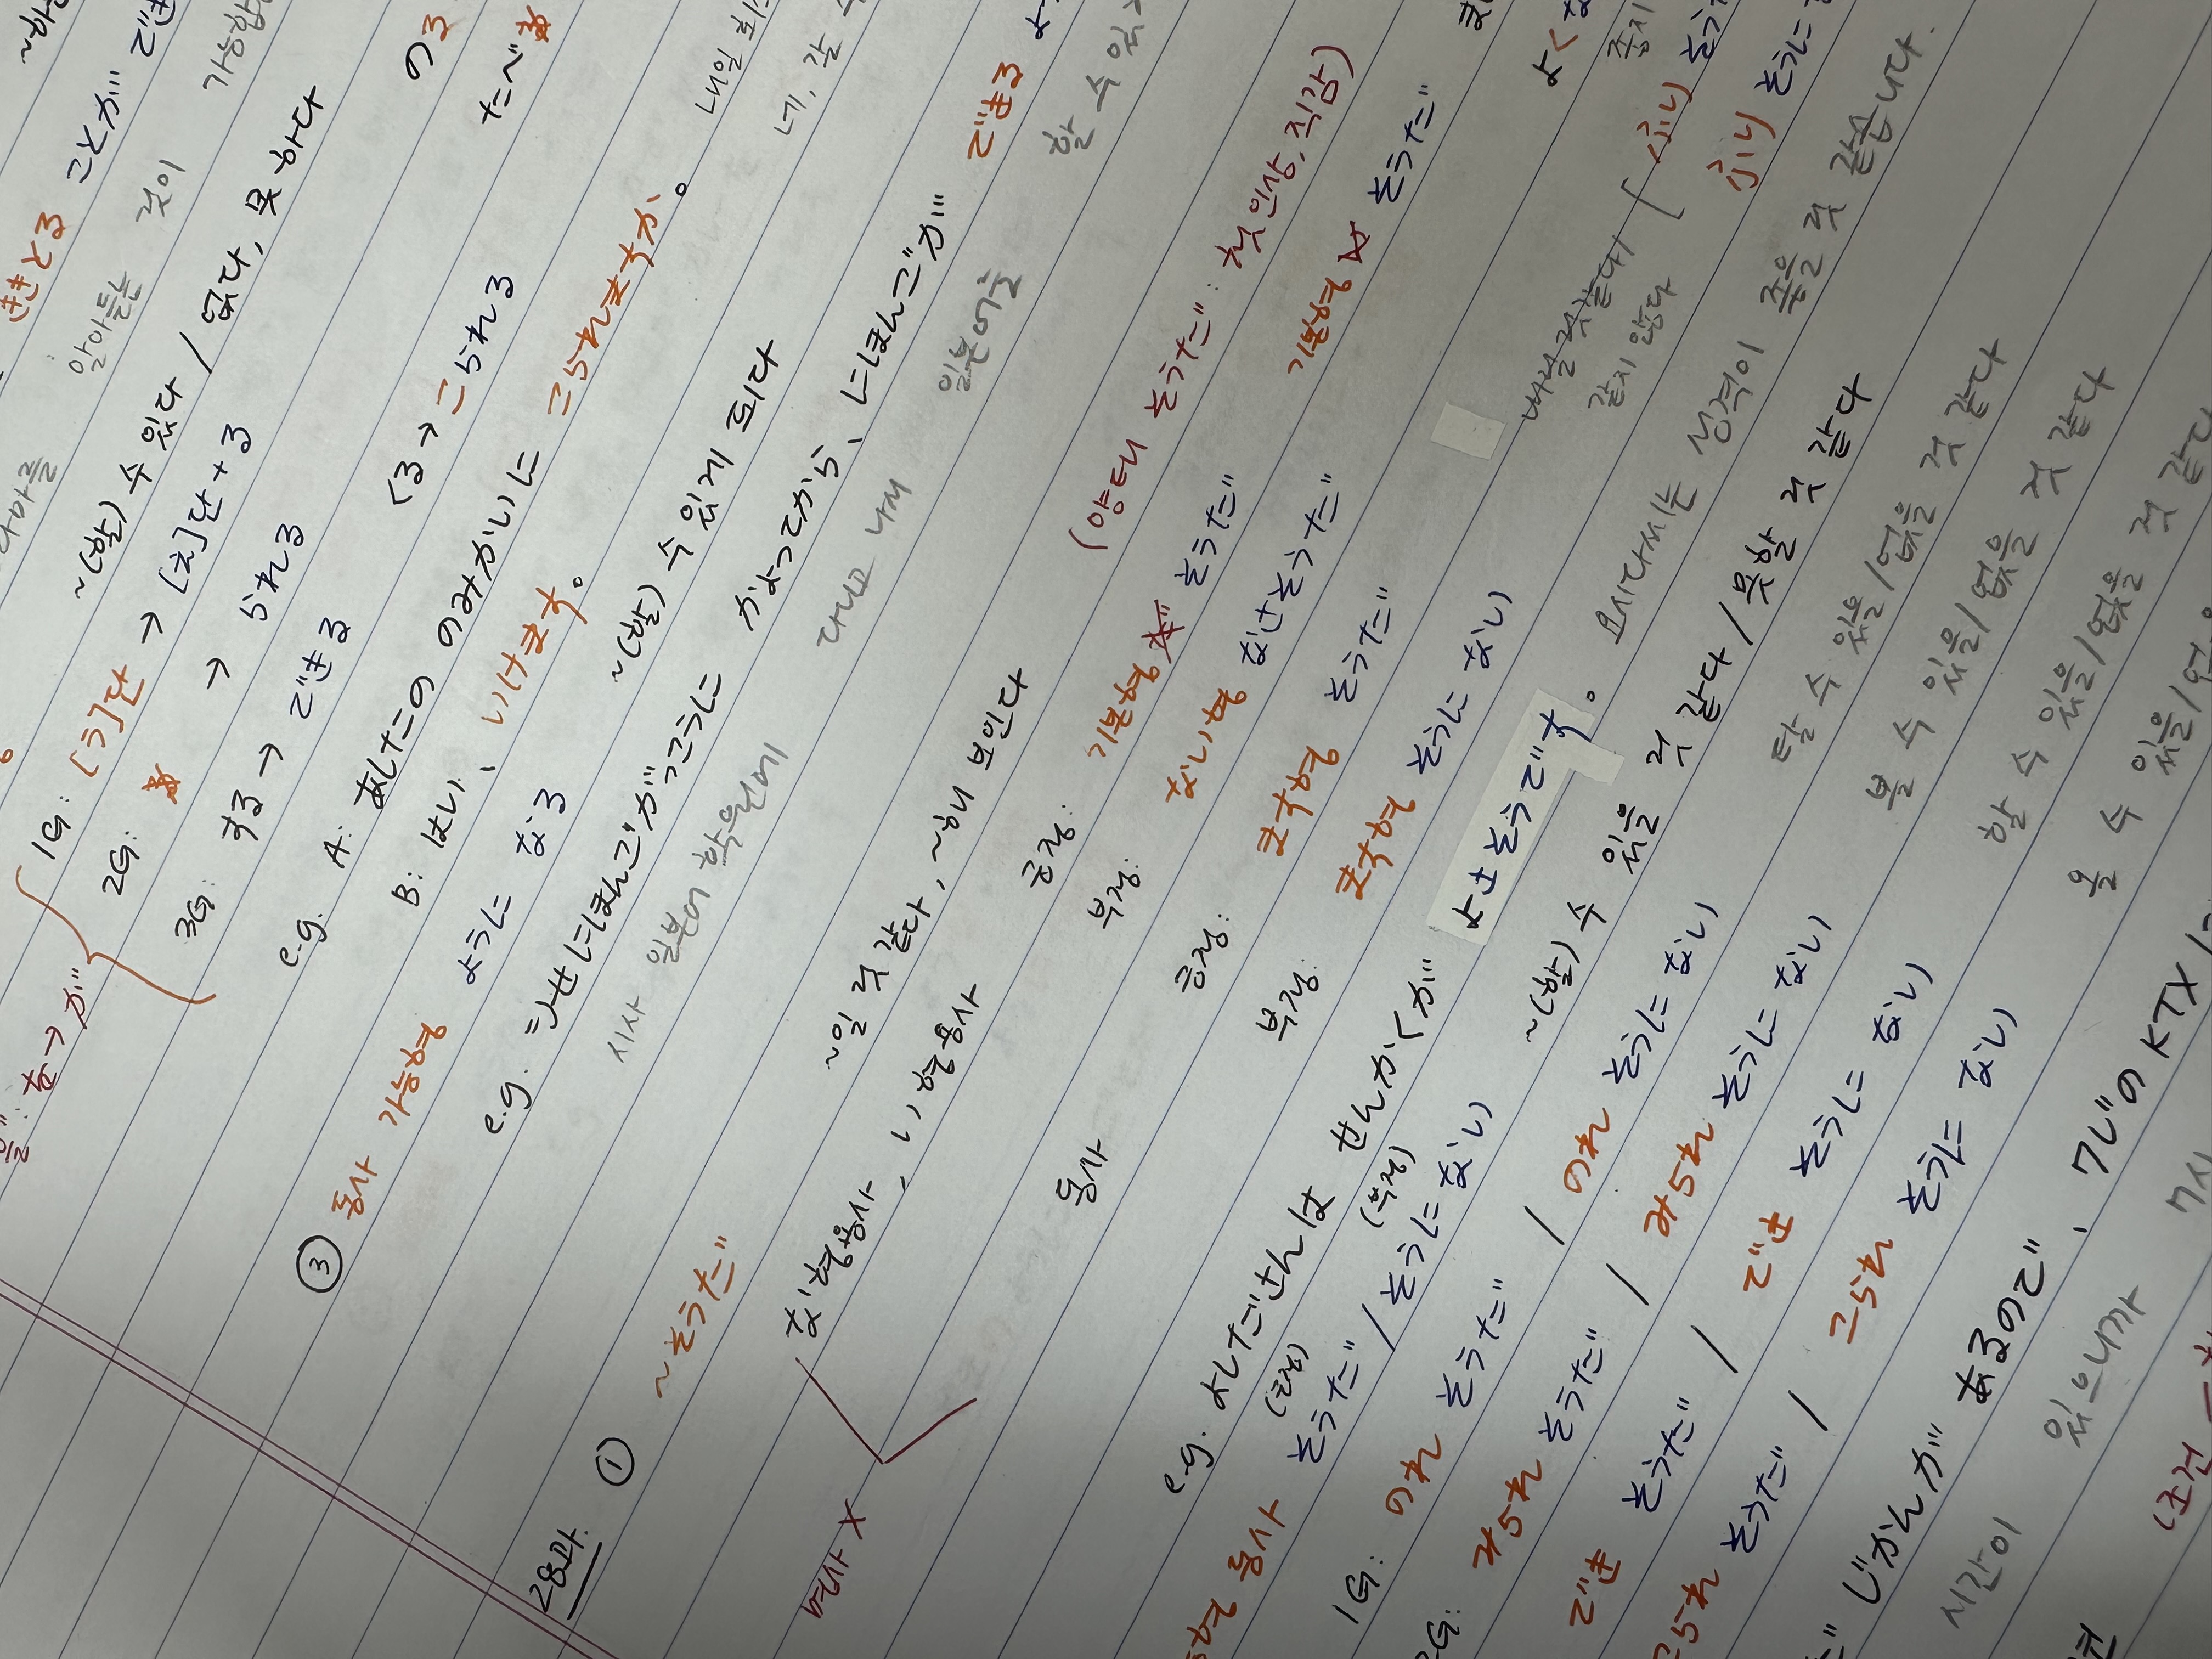 ~하
ききとる ことが でき
알아듣는 것이 가능합
~(할) 수 있다 / 없다, 못 하다
1G: [う]단 → [え]단+る のる
2G: る → られる たべる
3G: する → できる くる → こられる
e.g. A: あしたの のみかいに こられますか。
내일 회
B: はい、いけます。
네, 갈 수
を → が
③ 동사 가능형 ように なる ~(할) 수 있게 되다
e.g. しせにほんごがっこうに かよってから、にほんごが できる よ
시사 일본어 학원에 다니고 나서 일본어를 할 수 있
28과.
① ~そうだ ~일 것 같다, ~해 보인다 (양태 そうだ: 첫인상, 직감)
な형용사, い형용사 긍정: 기본형 そうだ 기본형 い そうだ
명사 X 부정: ない형 なさそうだ
동사 긍정: ます형 そうだ
부정: ます형 そうに ない
내릴 것 같다 / 같지 않다 [ ふり そう
ふり そうに
e.g. よしださんは せんかくが よさそうです。
요시다씨는 성격이 좋을 것 같습니다.
동사 (긍정) そうだ / (부정) そうに ない ~(할) 수 있을 것 같다 / 못할 것 같다
1G: のれ そうだ / のれ そうに ない 탈 수 있을/없을 것 같다
2G: みられ そうだ / みられ そうに ない 볼 수 있을/없을 것 같다
でき そうだ / でき そうに ない 할 수 있을/없을 것 같다
こられ そうだ / こられ そうに ない 올 수 있을/없
じかんが あるので、7じの KTX
시간이 있으니까 7시